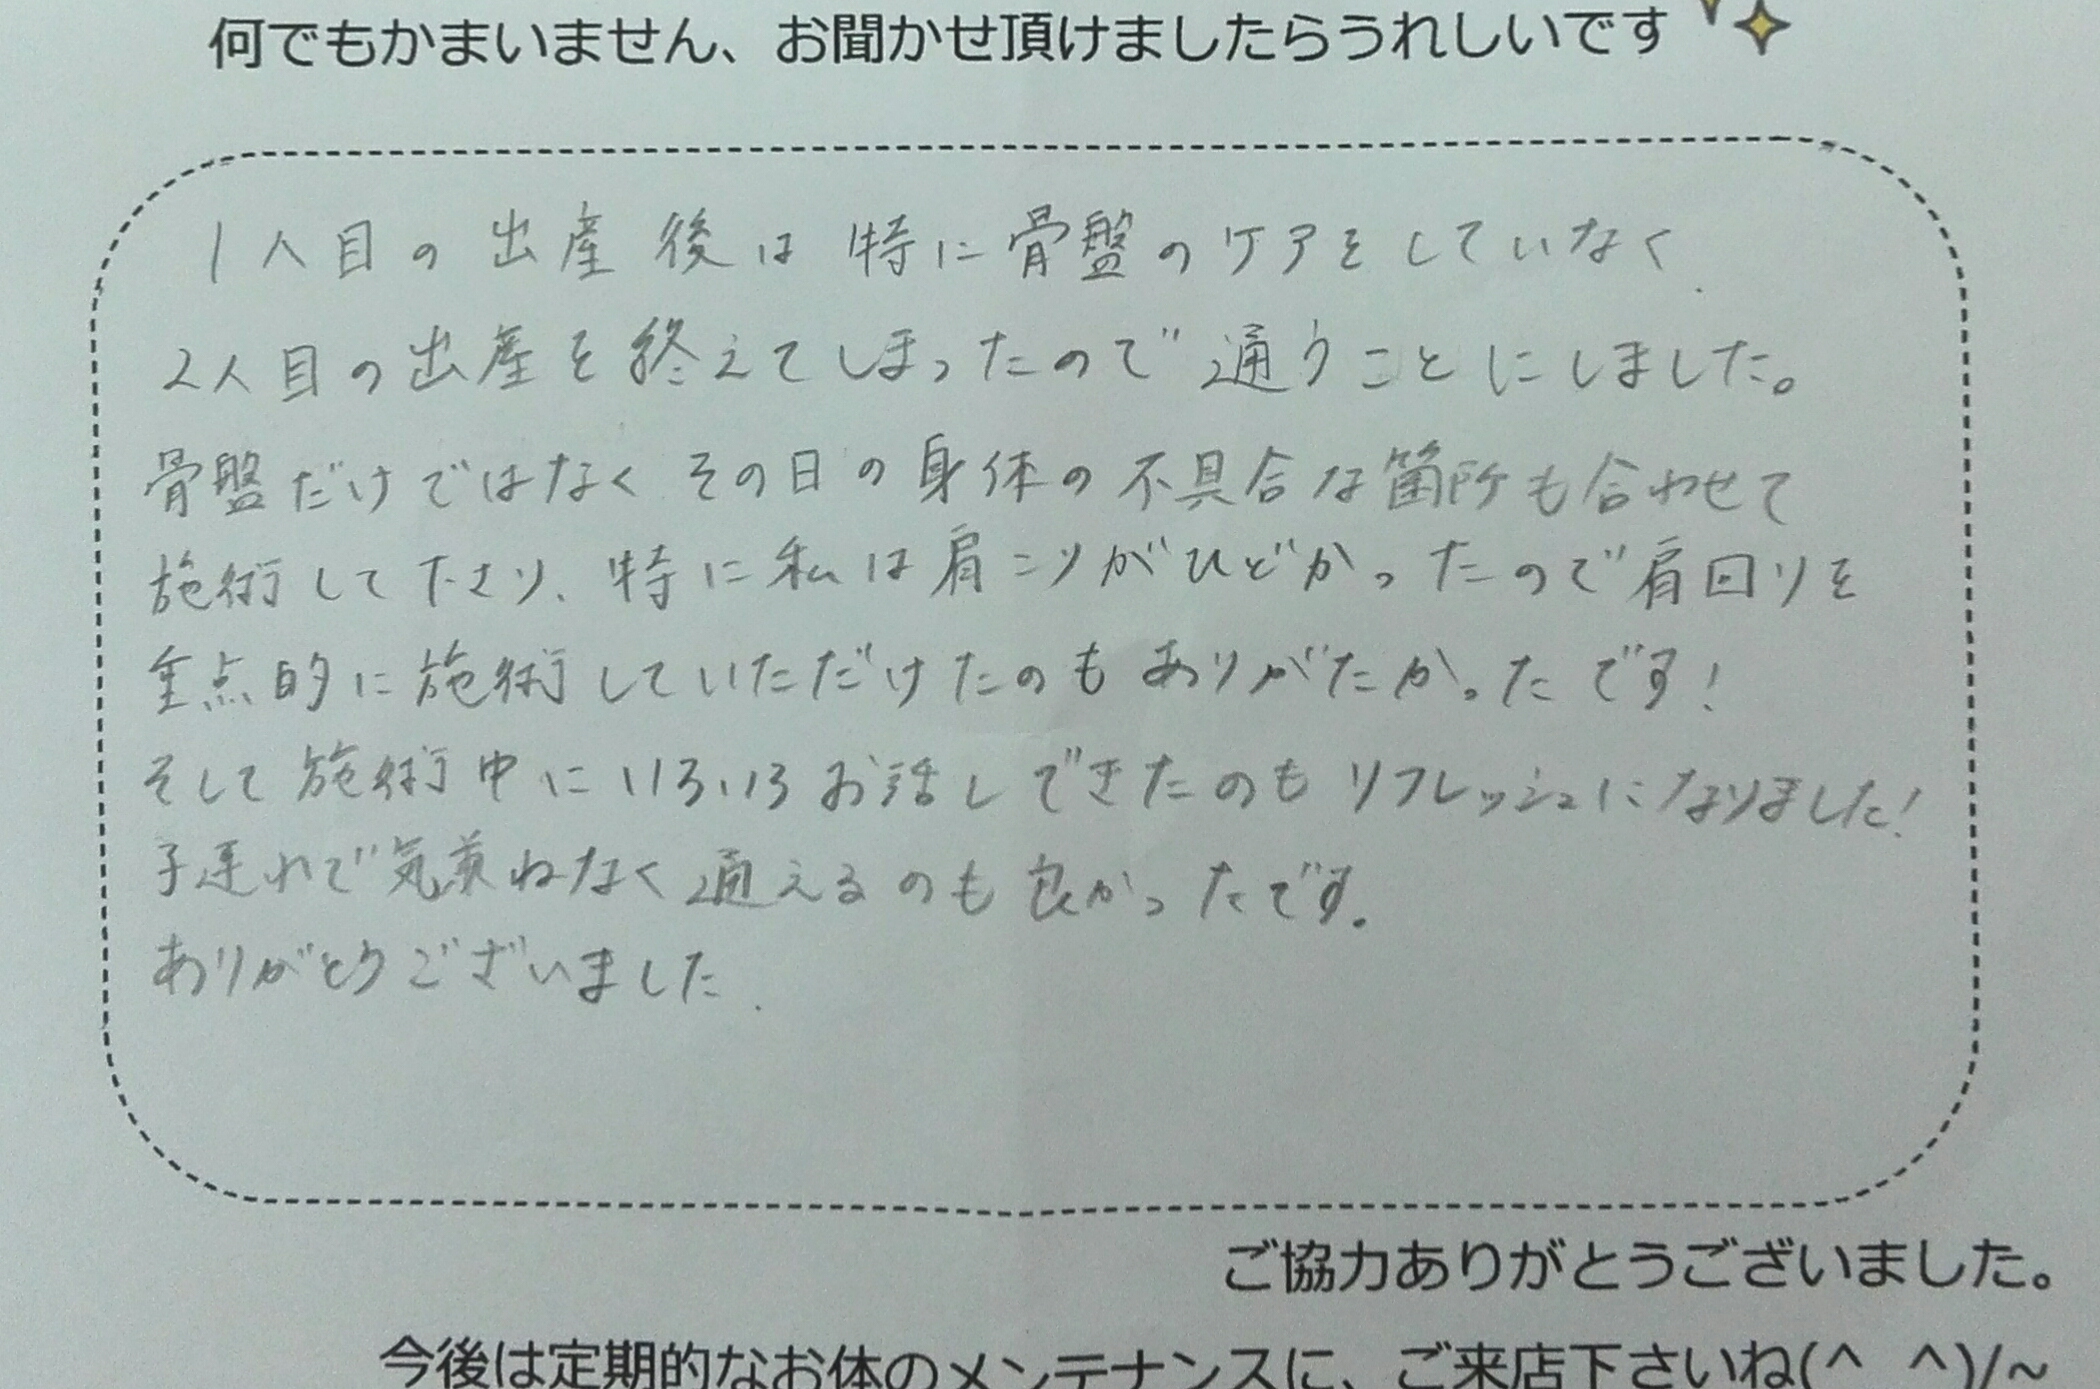 何でもかまいません、お聞かせ頂けましたらうれしいです
1人目の出産後は特に骨盤のケアをしていなく
2人目の出産を終えてしまったので通うことにしました。
骨盤だけではなくその日の身体の不具合な箇所も合わせて
施術して下さり、特に私は肩こりがひどかったので肩回りを
重点的に施術していただけたのもありがたかったです!
そして施術中にいろいろお話しできたのもリフレッシュになりました!
子連れで気兼ねなく通えるのも良かったです。
ありがとうございました.
ご協力ありがとうございました。
今後は定期的なお体のメンテナンスに、ご来店下さいね(^ ^)/~